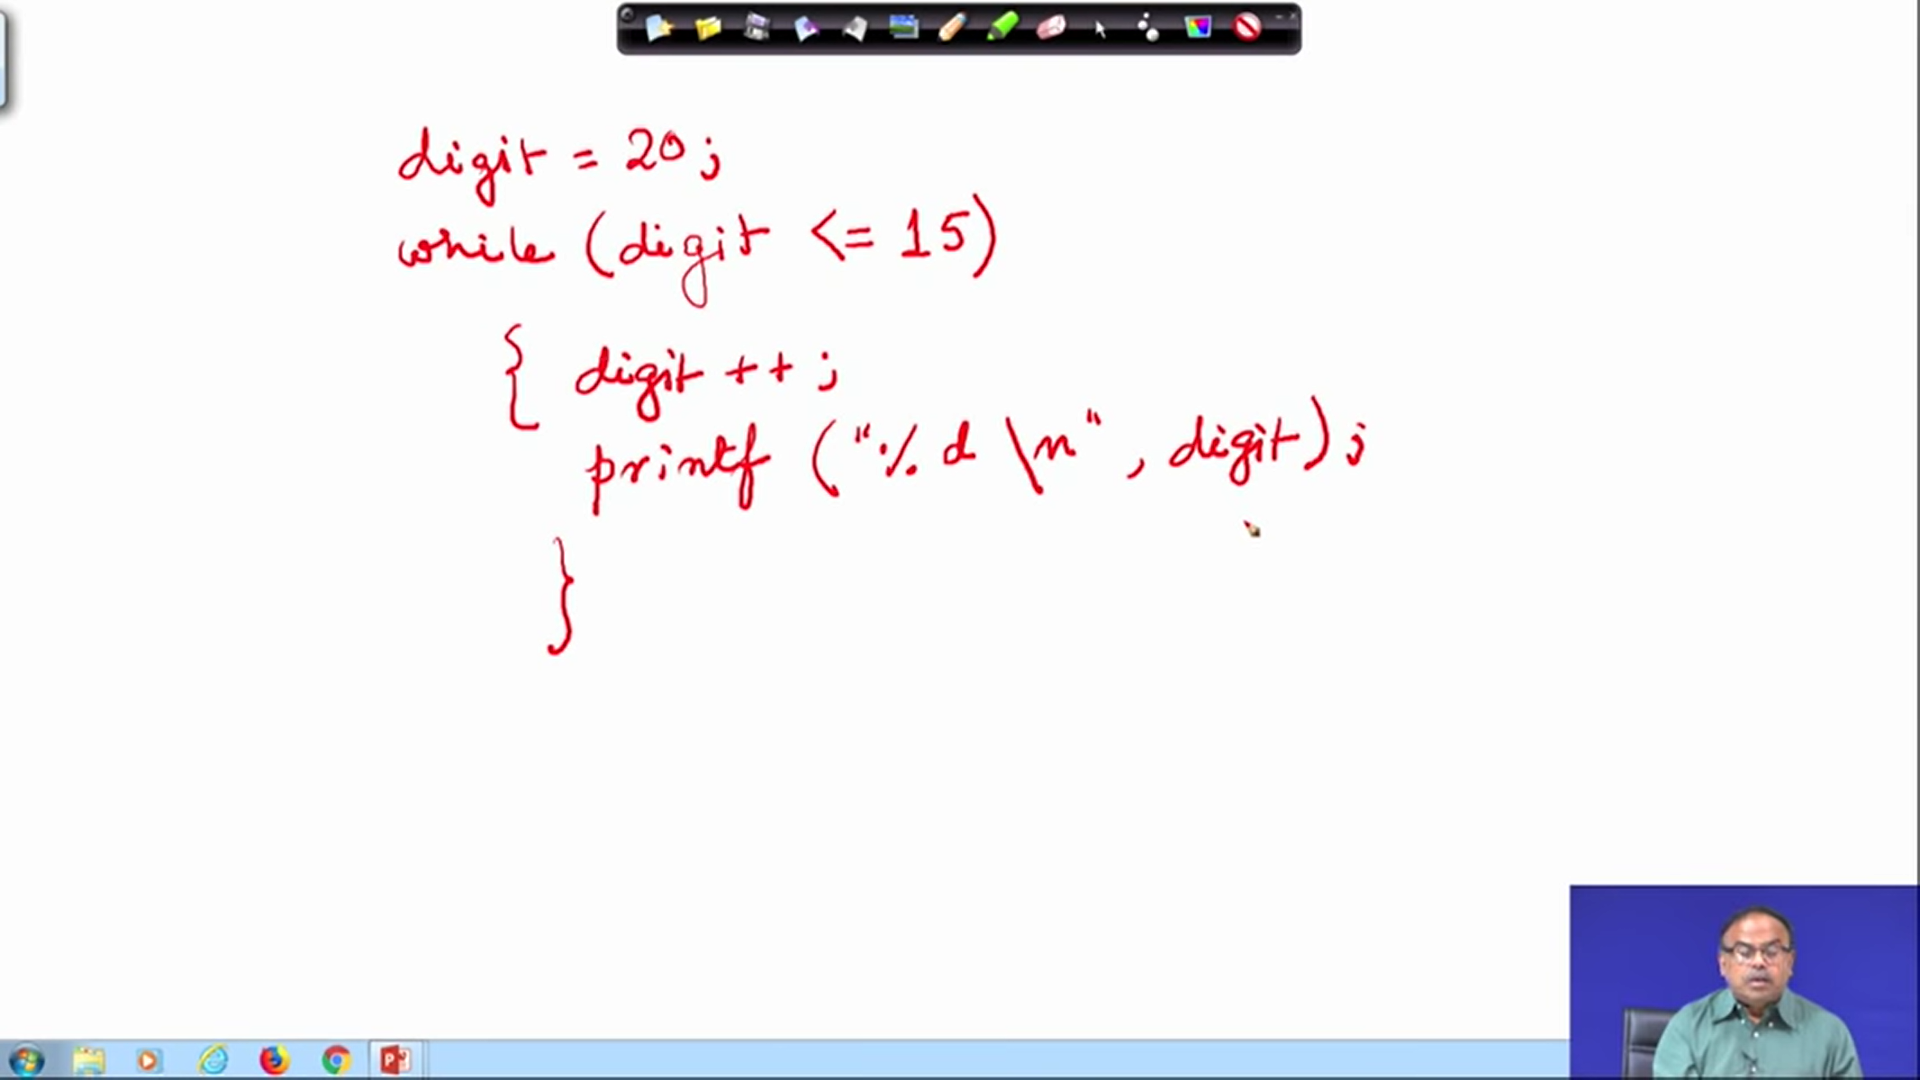 digit = 20;
while (digit <= 15)
{ digit ++ ;
printf ("% d \n" , digit) ;
}